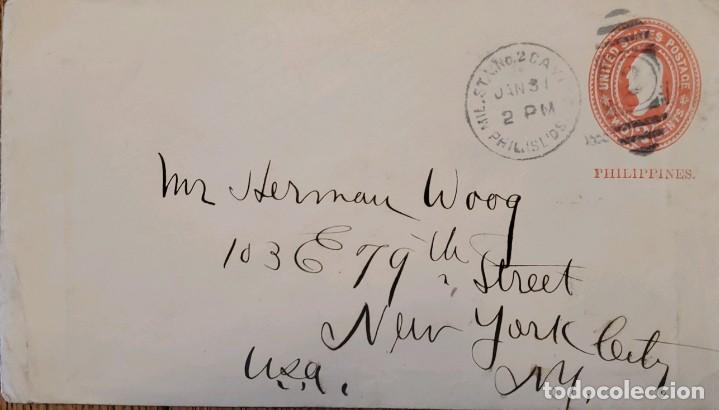 MIL. STA. No. 2 CAVI
JAN 31
2 PM
PHIL. ISL'DS.
UNITED STATES POSTAGE
PHILIPPINES.
Mr Herman Woog
103 E. 79th Street
New York City
U.S.A. NY.
todocoleccion